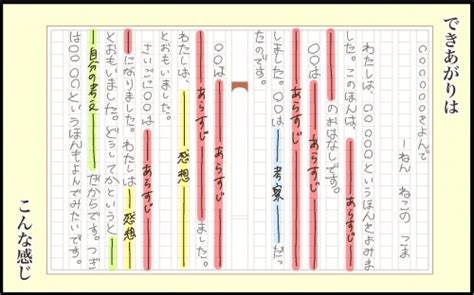 できあがりは
○○○○○○をよんで
一ねん ねこの つま
わたしは、○○○○○というほんをよみま
した。このほんは、 あらすじ
のおはなしです。
○○は あらすじ
あらすじ
しました。 考察 だっ
たのです。
○○は あらすじ
あらすじ ました。
わたしは、 感想
とおもいました。
さいごに○○は あらすじ
になりました。わたしは 感想
とおもいました。どうしてかというと
自分の考え だからです。つぎ
は○○○○というほんもよんでみたいです。
こんな感じ